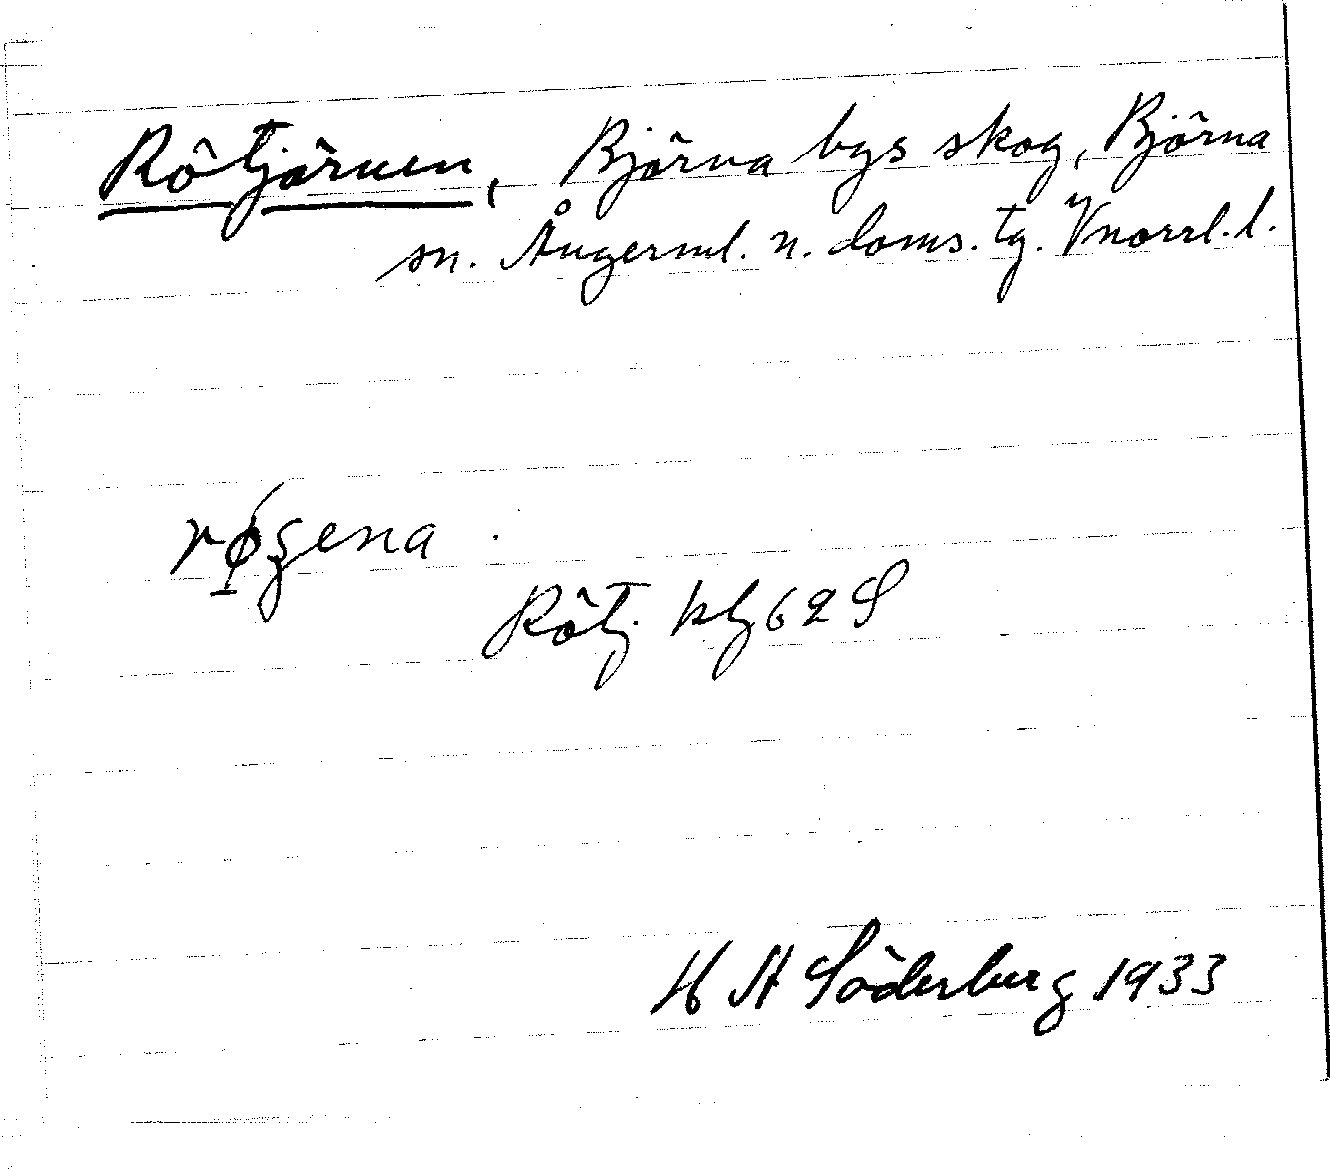 Rötjärnen, Björna bys skog, Björna
sn. Ångerml. n. doms. tg. Vnorrl. l.
Rötj. kbl 62 S
H A Söderberg 1933